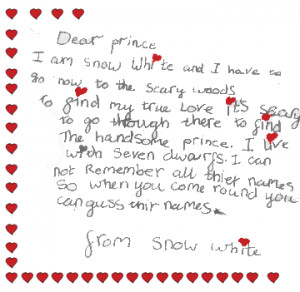 Dear prince
I am snow white and I have to
go now to the scary woods
to find my true love it's scary
to go though there to find
The handsome prince. I live
with seven dwarfs. I can
not Remember all thier names
so when you come round you
can guss thir names
from snow white